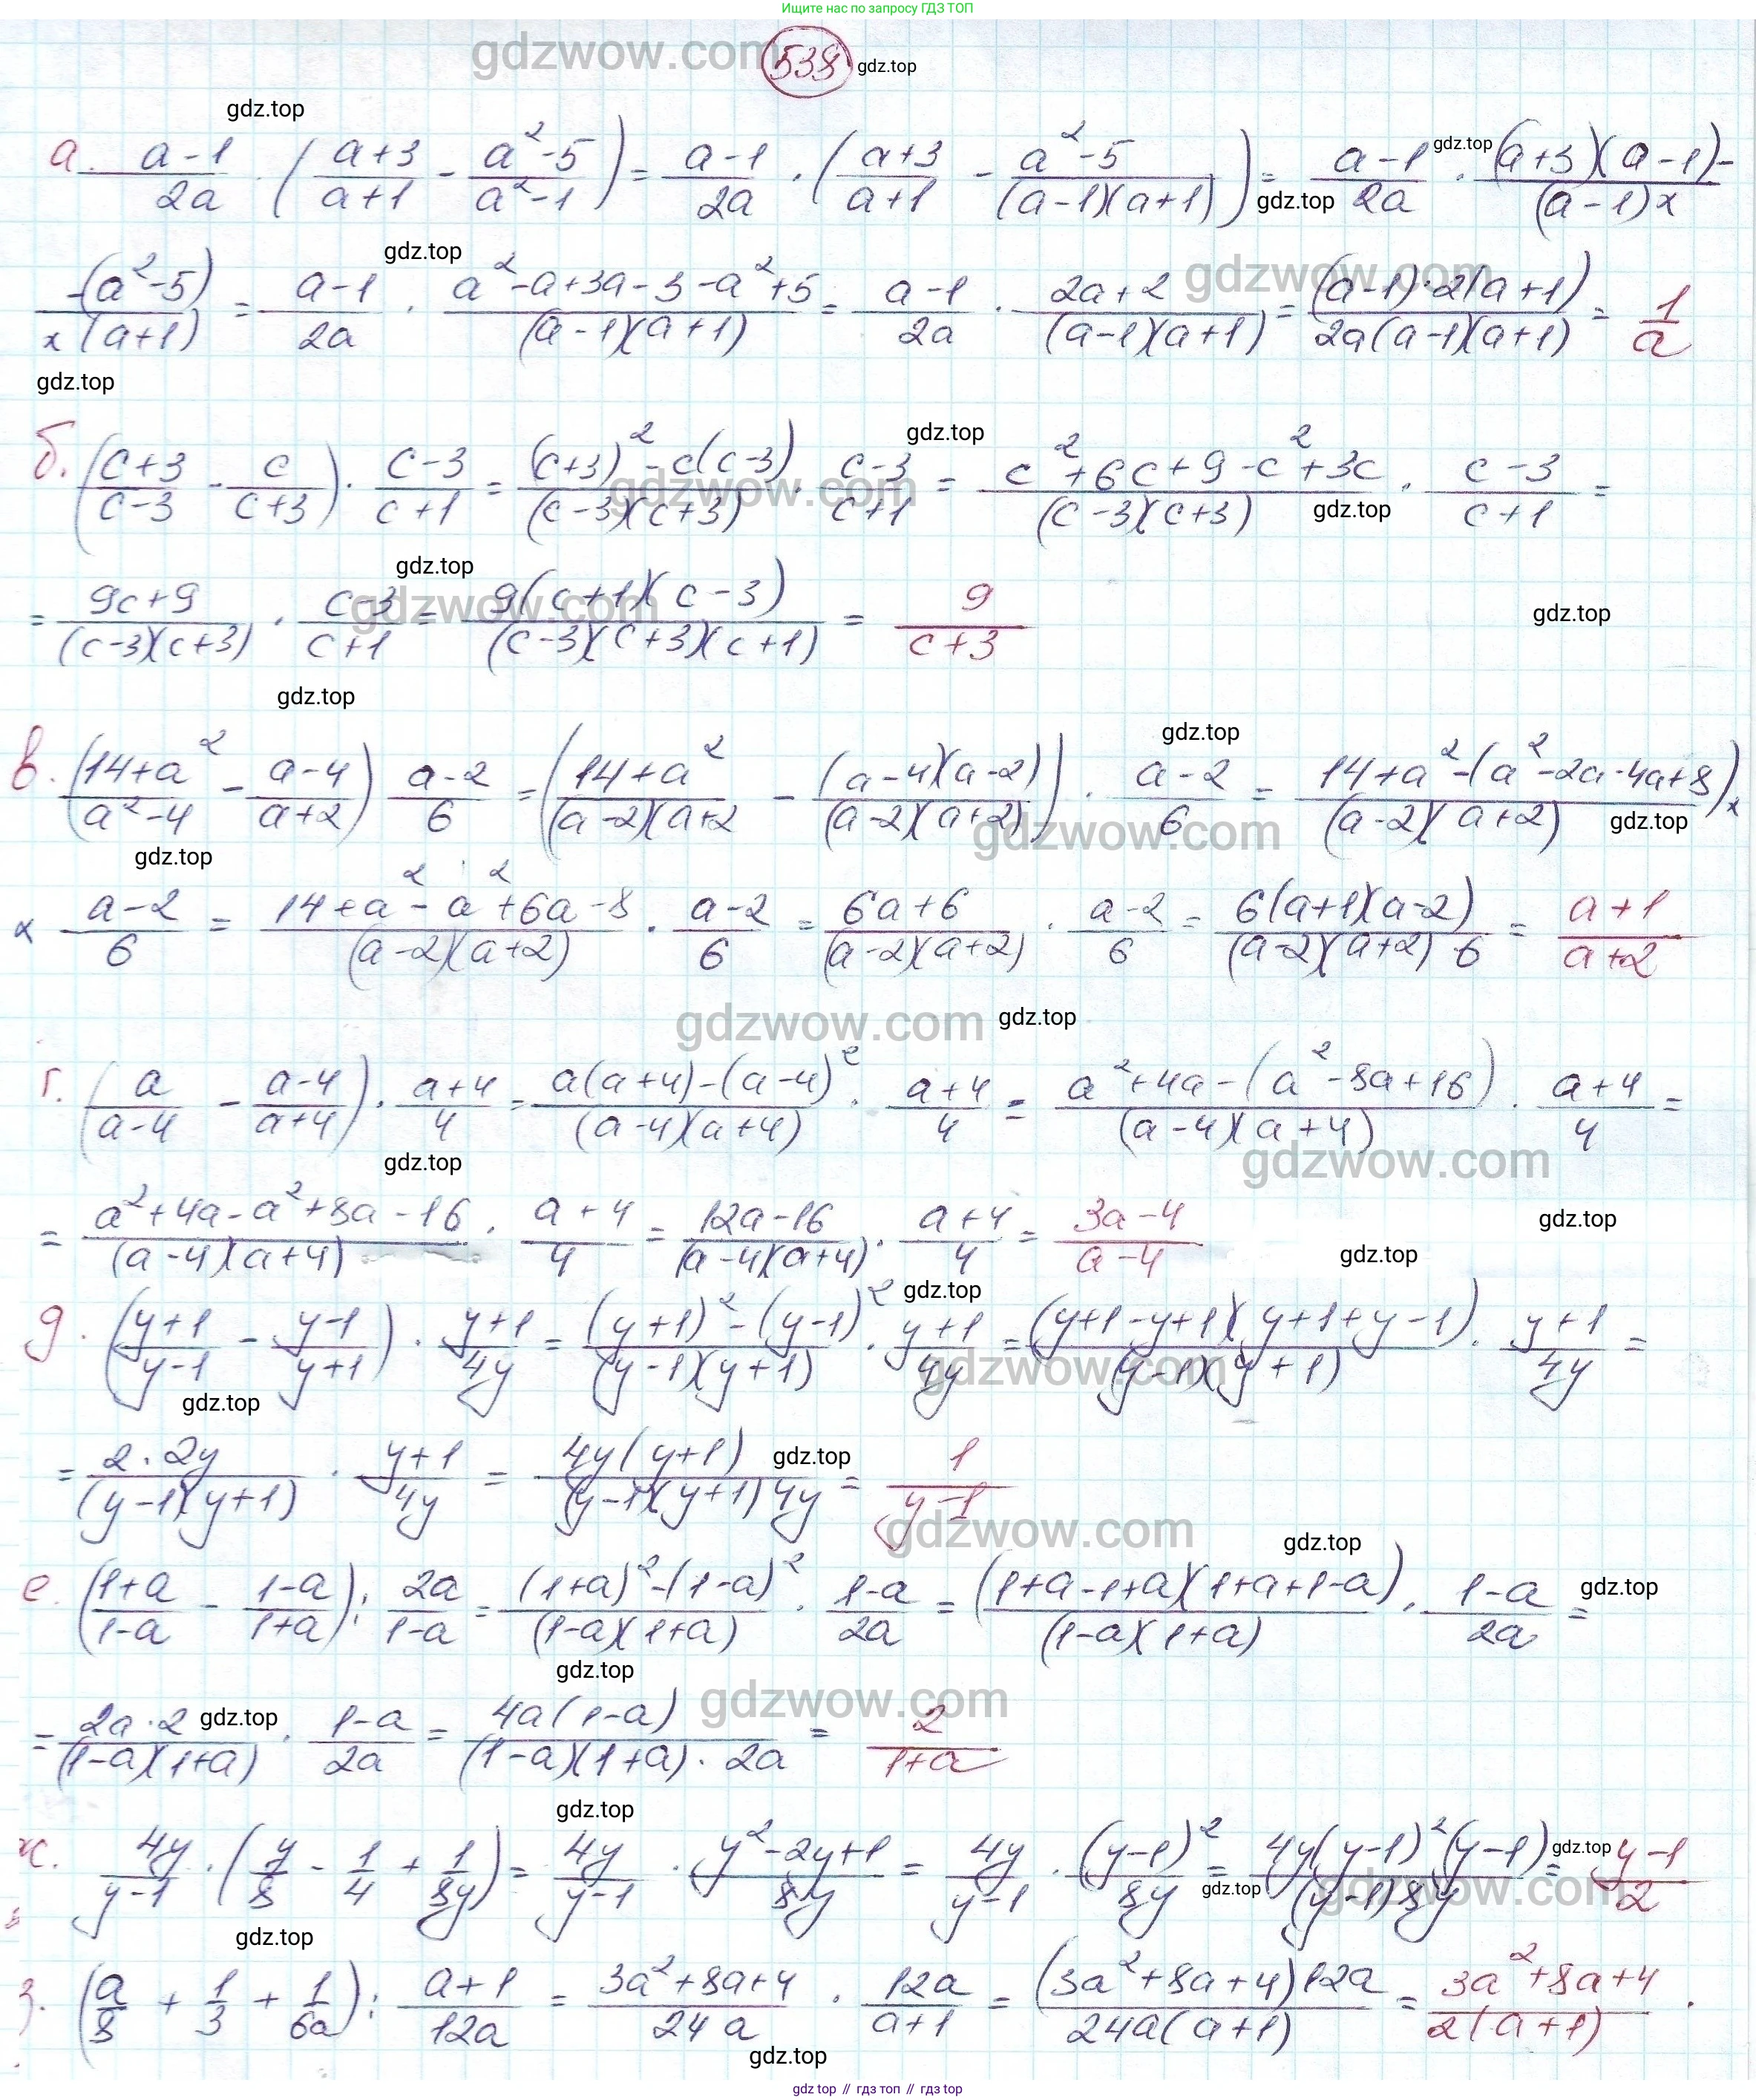 Ищите нас по запросу ГДЗ ТОП
gdzwow.com 538 gdz.top
gdz.top
а. (a-1)/(2a) · ((a+3)/(a+1) - (a²-5)/(a²-1)) = (a-1)/(2a) · ((a+3)/(a+1) - (a²-5)/((a-1)(a+1))) = (a-1)/(2a) · ((a+3)(a-1)-)/((a-1)x gdz.top gdz.top
gdz.top gdzwow.com
-(a²-5)/(x(a+1)) = (a-1)/(2a) · (a²-a+3a-3-a²+5)/((a-1)(a+1)) = (a-1)/(2a) · (2a+2)/((a-1)(a+1)) = ((a-1)·2(a+1))/(2a(a-1)(a+1)) = 1/a
gdz.top
gdz.top
б. ((c+3)/(c-3) - c/(c+3)) · (c-3)/(c+1) = ((c+3)²-c(c-3))/((c-3)(c+3)) · (c-3)/(c+1) = (c²+6c+9-c²+3c)/((c-3)(c+3)) · (c-3)/(c+1) =
gdzwow.com gdz.top
gdz.top
= (9c+9)/((c-3)(c+3)) · (c-3)/(c+1) = (9(c+1)(c-3))/((c-3)(c+3)(c+1)) = 9/(c+3)
gdzwow.com gdz.top
gdz.top
gdz.top
в. ((14+a²)/(a²-4) - (a-4)/(a+2)) (a-2)/6 = ((14+a²)/((a-2)(a+2) - ((a-4)(a-2))/((a-2)(a+2))) · (a-2)/6 = (14+a²-(a²-2a-4a+8))/((a-2)(a+2)) x
gdzwow.com gdz.top
gdz.top
x (a-2)/6 = (14+a²-a²+6a-8)/((a-2)(a+2)) · (a-2)/6 = (6a+6)/((a-2)(a+2)) · (a-2)/6 = (6(a+1)(a-2))/((a-2)(a+2) 6) = (a+1)/(a+2)
gdzwow.com gdz.top
г. (a/(a-4) - (a-4)/(a+4)) · (a+4)/4 = (a(a+4)-(a-4)²)/((a-4)(a+4)) · (a+4)/4 = (a²+4a-(a²-8a+16))/((a-4)(a+4)) · (a+4)/4 =
gdz.top gdzwow.com
= (a²+4a-a²+8a-16)/((a-4)(a+4)) · (a+4)/4 = (12a-16)/((a-4)(a+4)) · (a+4)/4 = (3a-4)/(a-4)
gdz.top
gdz.top
gdz.top
д. ((y+1)/(y-1) - (y-1)/(y+1)) · (y+1)/(4y) = ((y+1)²-(y-1)²)/((y-1)(y+1)) · (y+1)/(4y) = ((y+1-y+1)(y+1+y-1))/((y-1)(y+1)) · (y+1)/(4y) =
gdz.top gdzwow.com
= (2·2y)/((y-1)(y+1)) · (y+1)/(4y) = (4y(y+1))/((y-1)(y+1)4y) = 1/(y-1)
gdz.top
gdzwow.com gdz.top
е. ((1+a)/(1-a) - (1-a)/(1+a)) : (2a)/(1-a) = ((1+a)²-(1-a)²)/((1-a)(1+a)) · (1-a)/(2a) = ((1+a-1+a)(1+a+1-a))/((1-a)(1+a)) · (1-a)/(2a) =
gdz.top
gdz.top
= (2a·2)/((1-a)(1+a)) · (1-a)/(2a) = (4a(1-a))/((1-a)(1+a)·2a) = 2/(1+a)
gdz.top gdzwow.com
gdz.top
ж. (4y)/(y-1) · (y/8 - 1/4 + 1/(8y)) = (4y)/(y-1) · (y²-2y+1)/(8y) = (4y)/(y-1) · (y-1)²/(8y) = (4y(y-1)²(y-1))/((y-1)8y) = (y-1)/2
gdz.top gdz.top gdzwow.com
gdz.top
з. (a/8 + 1/3 + 1/(6a)) : (a+1)/(12a) = (3a²+8a+4)/(24a) · (12a)/(a+1) = ((3a²+8a+4)12a)/(24a(a+1)) = (3a²+8a+4)/(2(a+1)).
gdz.top
gdz top // гдз топ // гдз top